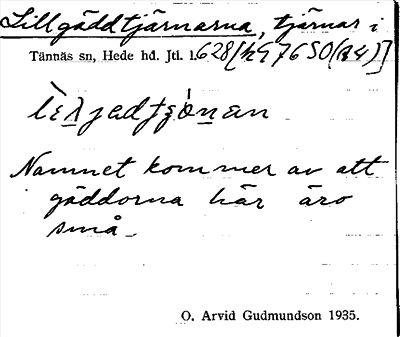 Lillgäddtjärnarna, tjärnar i
Tännäs sn, Hede hd. Jtl. l. 628[h97650(24)]
Namnet kommer av att
gäddorna här äro
små
O. Arvid Gudmundson 1935.